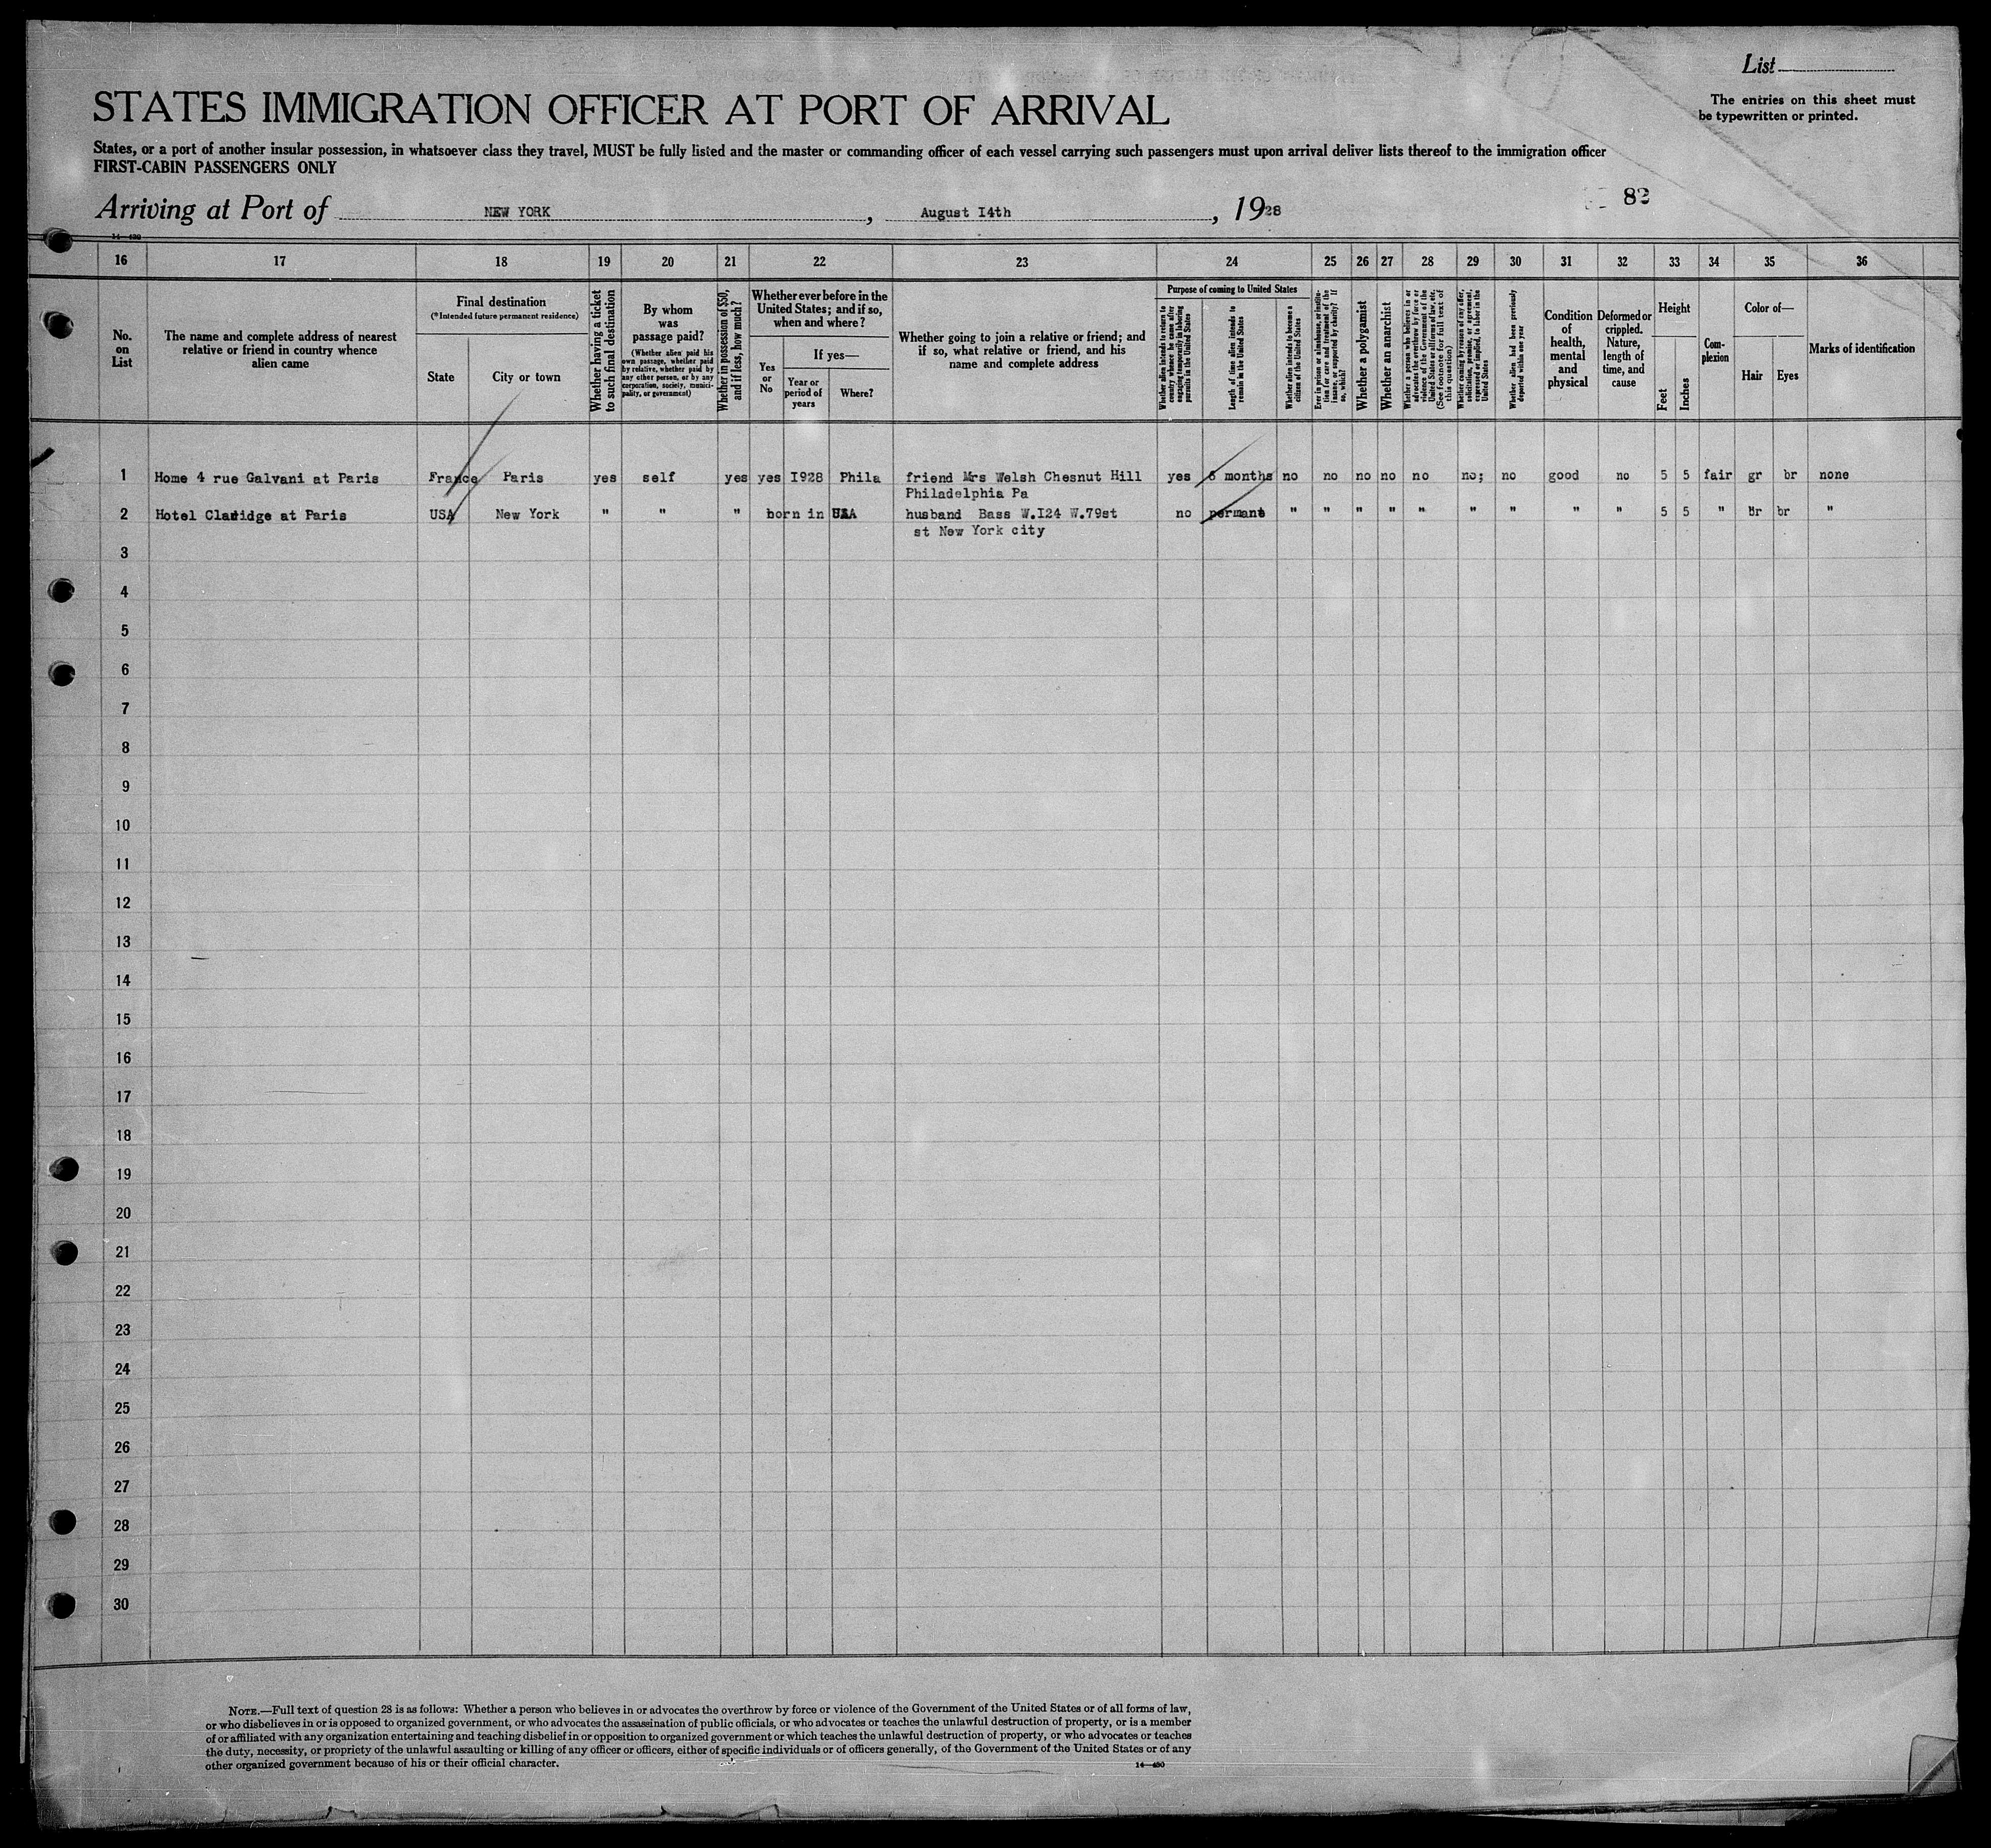 List
The entries on this sheet must
be typewritten or printed.
STATES IMMIGRATION OFFICER AT PORT OF ARRIVAL
States, or a port of another insular possession, in whatsoever class they travel, MUST be fully listed and the master or commanding officer of each vessel carrying such passengers must upon arrival deliver lists thereof to the immigration officer
FIRST-CABIN PASSENGERS ONLY
82
Arriving at Port of NEW YORK, August I4th, 1928
14—430
16 17 18 19 20 21 22 23 24 25 26 27 28 29 30 31 32 33 34 35 36
No.
on
List
The name and complete address of nearest
relative or friend in country whence
alien came
Final destination
(*Intended future permanent residence)
State
City or town
Whether having a ticket
to such final destination
By whom
was
passage paid?
(Whether alien paid his
own passage, whether paid
by relative, whether paid by
any other person, or by any
corporation, society, munici-
pality, or government)
Whether in possession of $50,
and if less, how much?
Whether ever before in the
United States; and if so,
when and where?
Yes
or
No
If yes—
Year or
period of
years
Where?
Whether going to join a relative or friend; and
if so, what relative or friend, and his
name and complete address
Purpose of coming to United States
Whether alien intends to return to
country whence he came after
engaging temporarily in laboring
pursuits in the United States
Length of time alien intends to
remain in the United States
Whether alien intends to become a
citizen of the United States
Ever in prison or almshouse, or institu-
tion for care and treatment of the
insane, or supported by charity? If
so, which?
Whether a polygamist
Whether an anarchist
Whether a person who believes in or
advocates the overthrow by force or
violence of the Government of the
United States or all forms of law, etc.
(See footnote for full text of
this question)
Whether coming by reason of any offer,
solicitation, promise, or agreement,
expressed or implied, to labor in the
United States
Whether alien had been previously
deported within one year
Condition
of
health,
mental
and
physical
Deformed or
crippled.
Nature,
length of
time, and
cause
Height
Feet
Inches
Com-
plexion
Color of—
Hair
Eyes
Marks of identification
1 Home 4 rue Galvani at Paris France Paris yes self yes yes I928 Phila friend Mrs Welsh Chesnut Hill yes 6 months no no no no no no; no good no 5 5 fair gr br none
Philadelphia Pa
2 Hotel Claridge at Paris USA New York " " " born in USA husband Bass W.I24 W.79st no permant " " " " " " " " " 5 5 " br br "
st New York city
3
4
5
6
7
8
9
10
11
12
13
14
15
16
17
18
19
20
21
22
23
24
25
26
27
28
29
30
NOTE.—Full text of question 28 is as follows: Whether a person who believes in or advocates the overthrow by force or violence of the Government of the United States or of all forms of law,
or who disbelieves in or is opposed to organized government, or who advocates the assassination of public officials, or who advocates or teaches the unlawful destruction of property, or is a member
of or affiliated with any organization entertaining and teaching disbelief in or opposition to organized government or which teaches the unlawful destruction of property, or who advocates or teaches
the duty, necessity, or propriety of the unlawful assaulting or killing of any officer or officers, either of specific individuals or of officers generally, of the Government of the United States or of any
other organized government because of his or their official character.
14—430